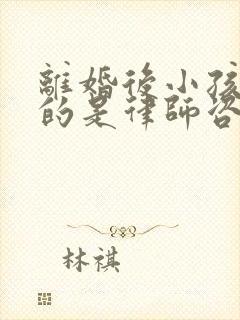 離婚後小孩
的是律師咨
林祺